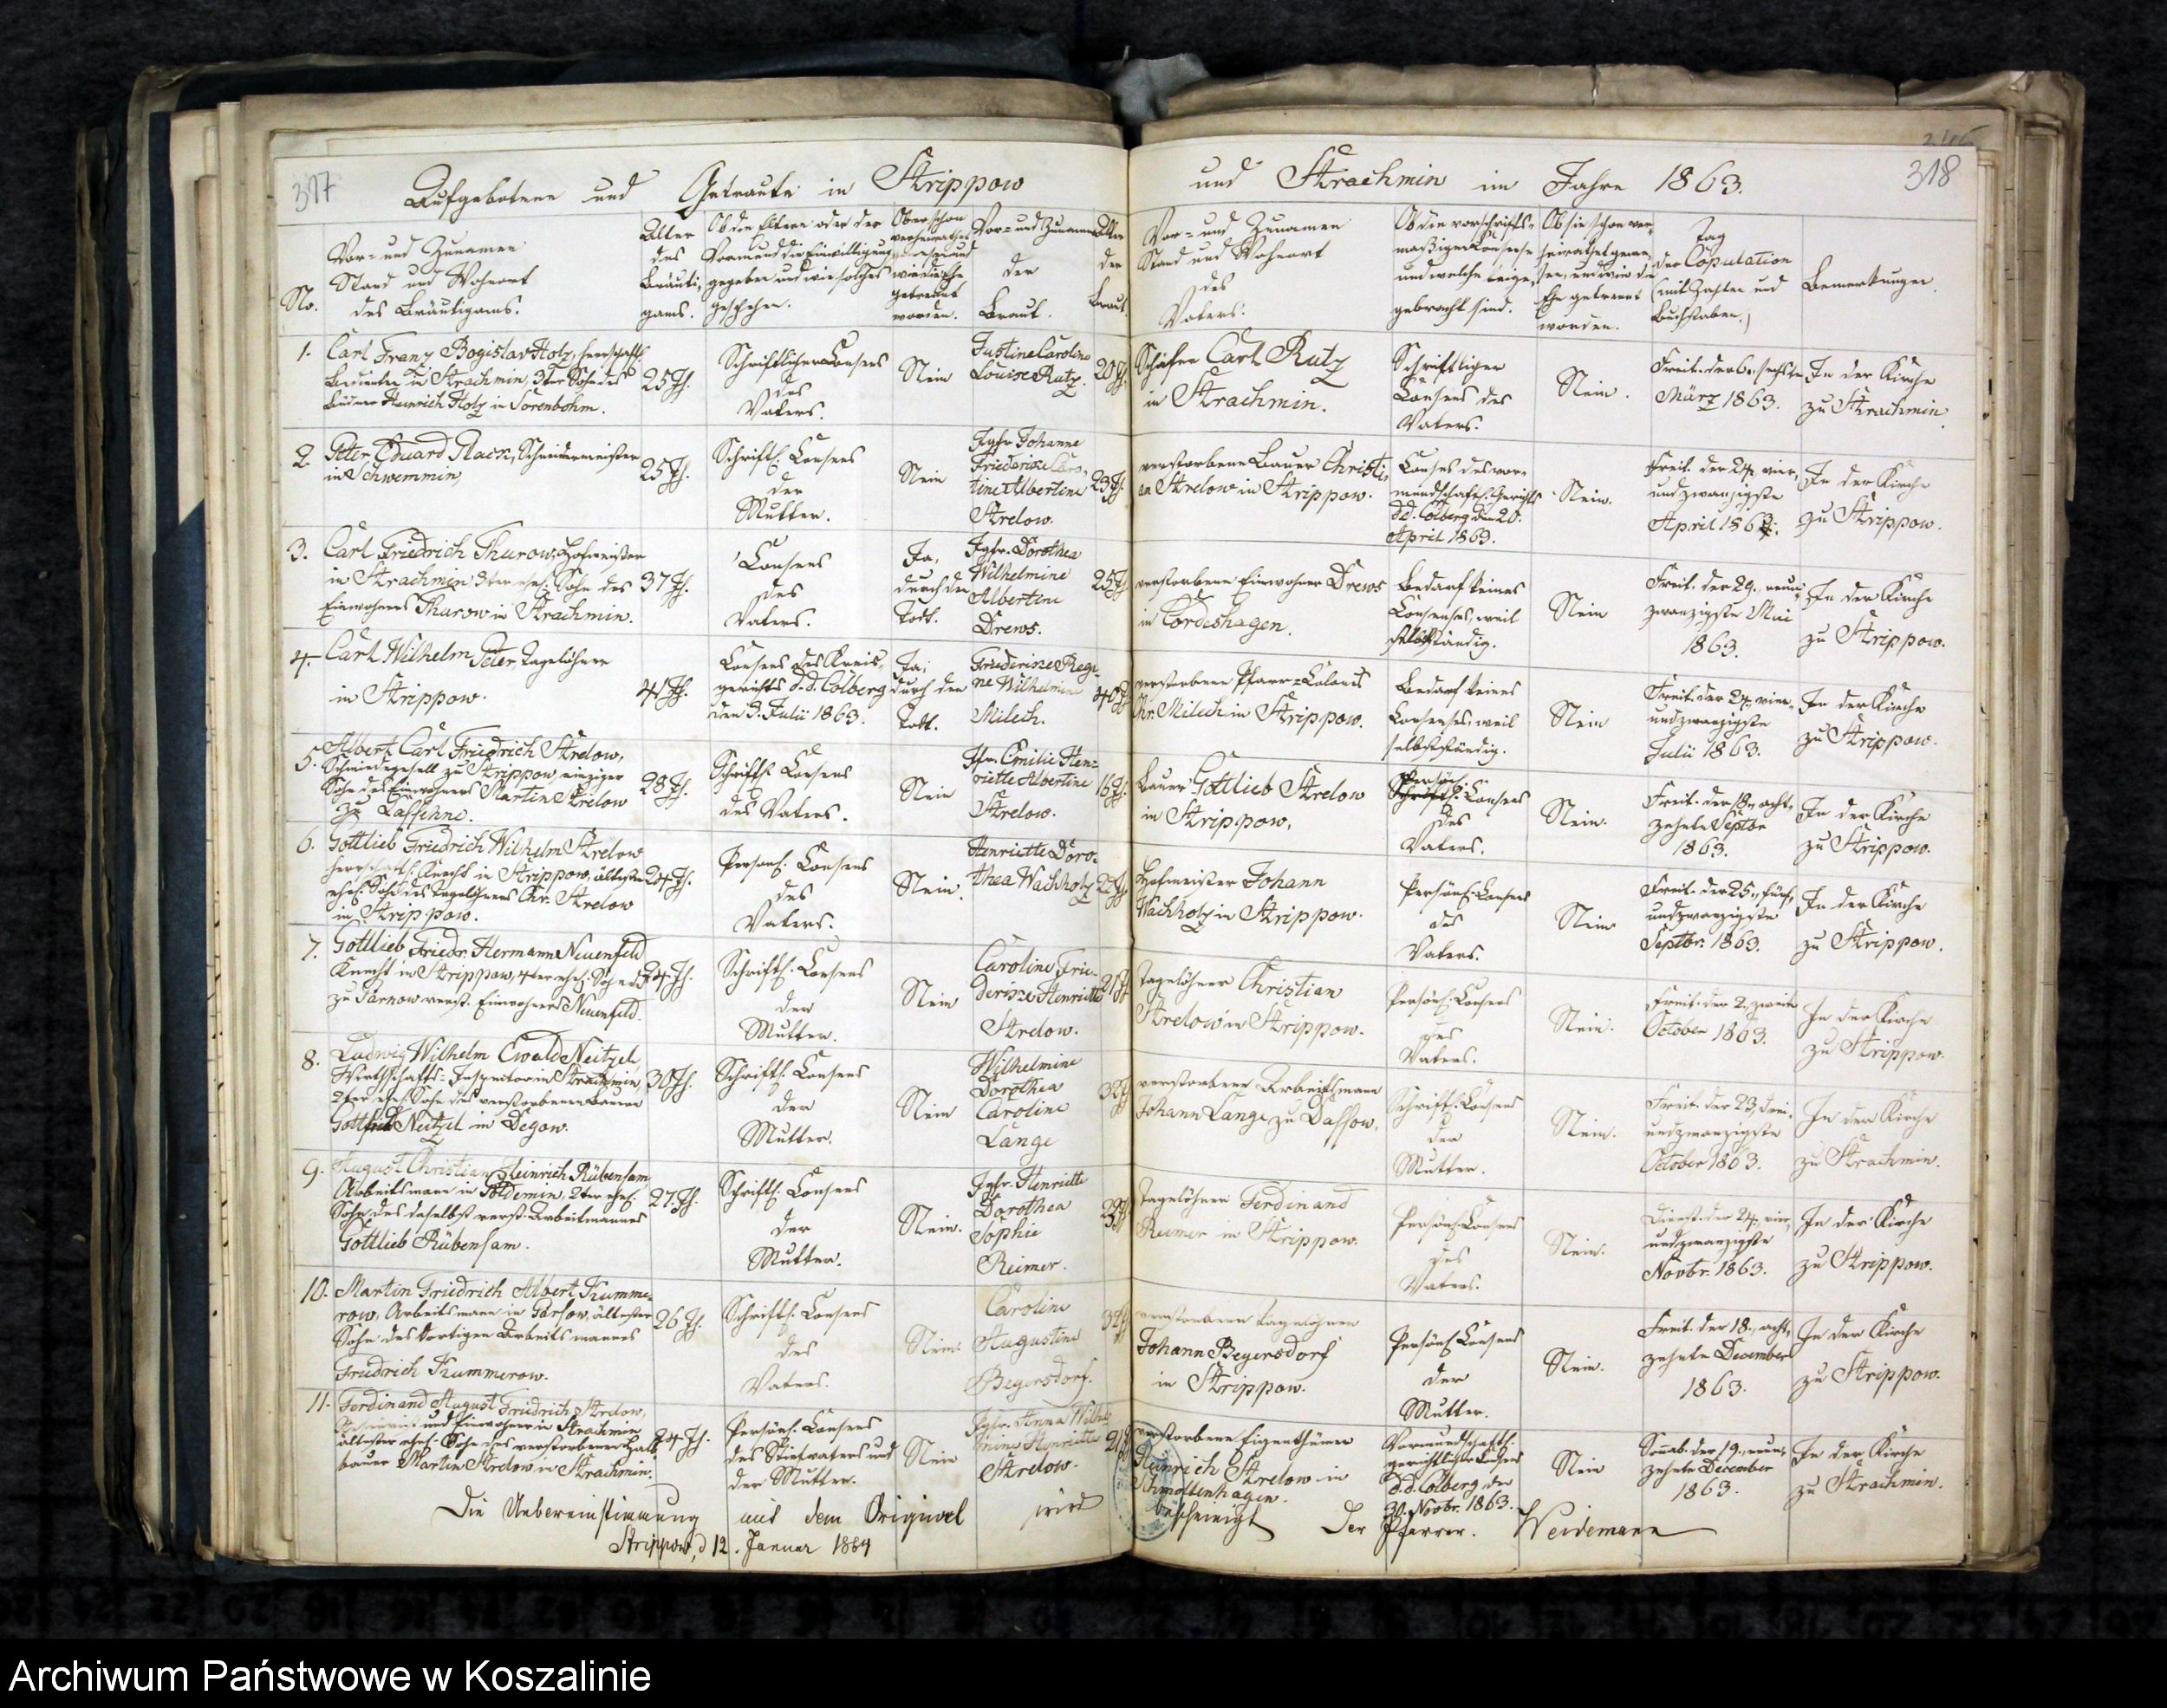 317
Aufgebotene und Getraute in Strippow
und Strachmin im Jahre 1863.
318
No.
Vor- und Zunamen
Stand und Wohnort
des Bräutigams.
Alter
des
Bräuti-
gams.
Ob die Eltern oder der
Vormund die Einwilligung
gegeben und wie solches
geschehen.
Ob er schon
verheirathet
gewesen und
wie die Ehe
getrennt
worden.
Vor- und Zunamen
der
Braut.
Alter
der
Braut.
Vor- und Zunamen
Stand und Wohnort
des
Vaters.
Ob die vorschrifts-
mäßigen Consense
und welche beige-
gebracht sind.
Ob sie schon ver-
heirathet gewe-
sen, und wie die
Ehe getrennt
worden.
Tag
der Copulation
(mit Zahlen und
Buchstaben.)
Bemerkungen.
1.
Carl Franz Bogislav Hotz, herrschaftl.
Bedienter in Strachmin, 3ter Sohn des
Büdner Heinrich Hotz in Sorenbohm.
25 J.
Schriftlicher Consens
des
Vaters.
Nein
Justine Caroline
Louise Rutz.
20 J.
Schäfer Carl Rutz
in Strachmin.
Schriftlicher
Consens des
Vaters.
Nein.
Freit. der 6., sechste
März 1863.
In der Kirche
zu Strachmin.
2.
Peter Eduard Raek, Schneidermeister
in Schwemmin,
25 J.
Schriftl. Consens
der
Mutter.
Nein
Jgfr. Johanne
Friederike Caro-
line Albertine
Strelow.
23 J.
verstorbene Bauer Christi-
an Strelow in Strippow.
Consens des vor-
mundschaftl. Gerichts
d.d. Colberg den 20.
April 1863.
Nein.
Freit. der 24., vier-
undzwanzigste
April 1863.
In der Kirche
zu Strippow.
3.
Carl Friedrich Thurow, Hofmeister
in Strachmin 3ter ehel. Sohn des
Einwohners Thurow in Strachmin.
37 J.
Consens
des
Vaters.
Ja,
durch den
Todt.
Jgfr. Dorothea
Wilhelmine
Albertine
Drews.
25 J.
verstorbene Einwohner Drews
in Cordeshagen.
Bedarf keines
Consenses, weil
selbständig.
Nein
Freit. der 29., neun-
zwanzigste Mai
1863.
In der Kirche
zu Strippow.
4.
Carl Wilhelm Peter, Tagelöhner
in Strippow.
41 J.
Consens des Kreis-
gerichts d.d. Colberg
den 3. Julii 1863.
Ja;
durch den
Todt.
Friederike Regi-
ne Wilhelmine
Milech.
40 J.
verstorbene Pfarr-Colonist
Chr. Milech in Strippow.
Bedarf keines
Consenses, weil
selbstständig.
Nein
Freit. der 24., vier-
undzwanzigste
Julii 1863.
In der Kirche
zu Strippow.
5.
Albert Carl Friedrich Strelow,
Schmiedegesell zu Strippow, einziger
Sohn des Einwohners Martin Strelow
zu Lassehne.
28 J.
Schriftl. Consens
des Vaters.
Nein
Jgfr. Emilie Hen-
riette Albertine
Strelow.
Bauer Gottlieb Strelow
in Strippow,
Persönl.
Consens
des
Vaters.
Nein.
Freit. der 18., acht-
zehnte Septbr
1863.
In der Kirche
zu Strippow.
6.
Gottlieb Friedrich Wilhelm Strelow
herrschaftl. Knecht in Strippow, ältester
ehel. Sohn des Tagelöhners Chr. Strelow
in Strippow.
24 J.
Persönl. Consens
des
Vaters.
Nein.
Henriette Doro-
thea Wachholz
22 J.
Hofmeister Johann
Wachholz in Strippow.
Persönl. Consens
des
Vaters.
Nein
Freit. der 25., fünf-
undzwanzigste
Septbr. 1863.
In der Kirche
zu Strippow.
7.
Gottlieb Friedr. Hermann Neuenfeld
Knecht in Strippow, 4ter ehel. Sohn des
zu Parnow verst. Einwohners Neuenfeld.
24 J.
Schriftl. Consens
der
Mutter.
Nein
Caroline Frie-
derike Henriette
Strelow.
21 J.
Tagelöhner Christian
Strelow in Strippow.
Persönl. Consens
des
Vaters.
Nein.
Freit. der 2., zweite
October 1863.
In der Kirche
zu Strippow.
8.
Ludwig Wilhelm Ewald Neitzel,
Wirthschafts-Inspector in Strachmin,
2ter ehel. Sohn des verstorbenen Bauern
Gottfried Neitzel in Degow.
30 J.
Schriftl. Consens
der
Mutter.
Nein
Wilhelmine
Dorothea
Caroline
Lange
verstorbene Arbeitsmann
Johann Lange zu Dassow.
Schriftl. Consens
der
Mutter.
Nein.
Freit. der 23., drei-
undzwanzigste
October 1863.
In der Kirche
zu Strachmin.
9.
August Christian Heinrich Rübensam,
Arbeitsmann in Poldemin, 2ter ehel.
Sohn des daselbst verst. Arbeitmannes
Gottlieb Rübensam.
27 J.
Schriftl. Consens
der
Mutter.
Nein.
Jgfr. Henriette
Dorothea
Sophie
Reimer.
Tagelöhner Ferdinand
Reimer in Strippow.
Persönl. Consens
des
Vaters.
Nein.
Dienst. der 24., vier-
undzwanzigste
Novbr. 1863.
In der Kirche
zu Strippow.
10.
Martin Friedrich Albert Kumme-
row, Arbeitsmann in Parsow, ältester
Sohn des dortigen Arbeitsmannes
Friedrich Kummerow.
26 J.
Schriftl. Consens
des
Vaters.
Nein.
Caroline
Augustine
Begersdorf.
verstorbene Tagelöhner
Johann Begersdorf
in Strippow.
Persönl. Consens
der
Mutter.
Nein.
Freit. der 18., acht-
zehnte December
1863.
In der Kirche
zu Strippow.
11.
Ferdinand August Friedrich Strelow,
und Einwohner in Strachmin,
ältester ehel. Sohn des verstorbenen Halb-
bauer Martin Strelow in Strachmin.
24 J.
Persönl. Consens
des Stiefvaters und
der Mutter.
Nein
Jgfr. Anna Wilhel-
mine Henriette
Strelow.
21 J.
verstorbene Eigenthümer
Heinrich Strelow in
Schmollenhagen.
Vormundschaftl.
gerichtlicher Consens
d.d. Colberg, den
30. Novbr. 1863.
Nein
Sonnab. der 19., neun-
zehnte December
1863.
In der Kirche
zu Strachmin.
Die Uebereinstimmung mit dem Original wird
bescheinigt Der Pfarrer. Weidemann
Strippow, d 12. Januar 1864
Archiwum Państwowe w Koszalinie